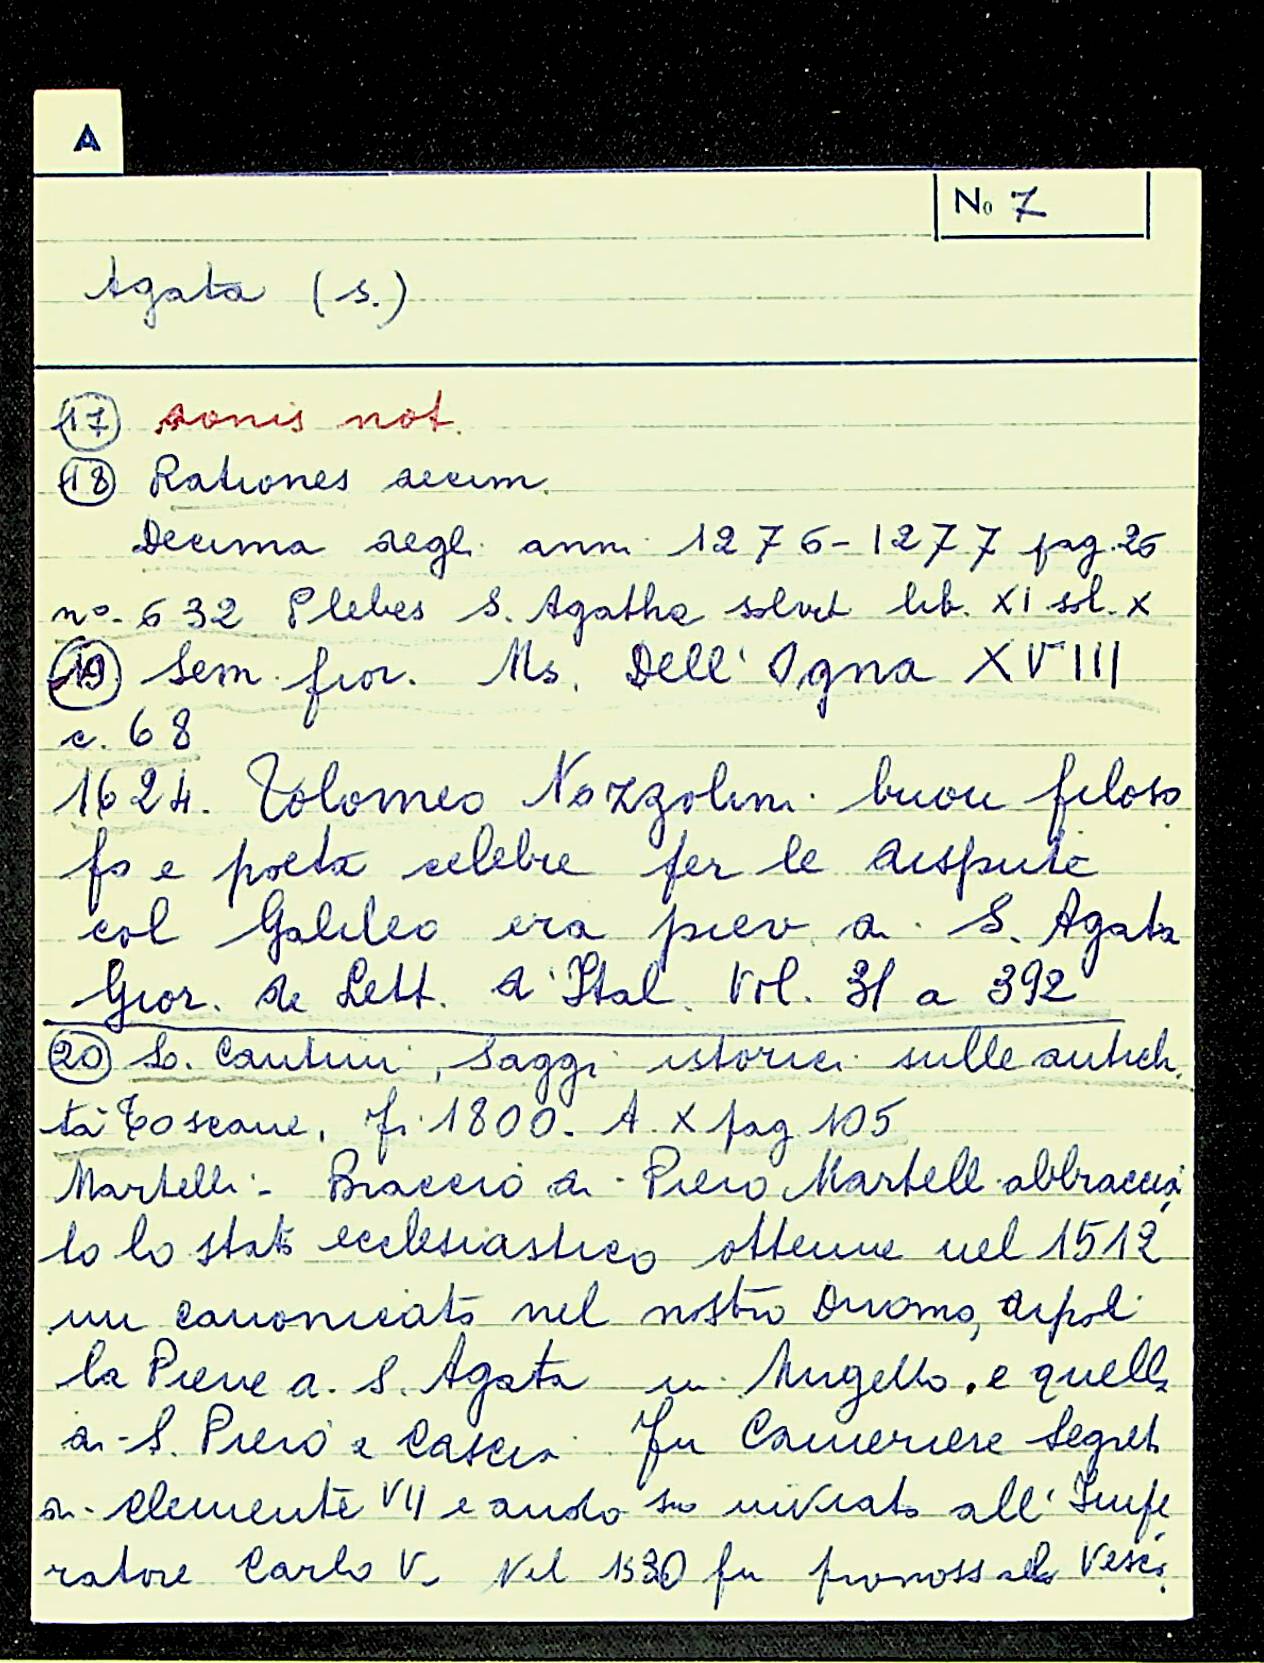 A
No 7
Agata (s.)
17 sonis not.
18 Rationes decim.
Decima degli anni 1276-1277 pag. 26
no. 632 Plebes S. Agathe solvit lib. XI sol. X
19 Sem. fior. Ms. Dell'Ogna XVIII
c. 68
1624. Tolomeo Nozzolini buon filoso
fo e poeta celebre per le dispute
col Galileo era piev. di S. Agata
Gior. de Lett. d'Ital. Vol. 31 a 392
20 Lo. Cantini, Saggi istorici sulle antich.
tà Toscane, Fi. 1800. t. X pag 105
Martelli - Braccio di Piero Martelli abbraccia
to lo stato ecclesiastico ottenne nel 1512
un canonicato nel nostro Duomo, dipoi
la Pieve a. S. Agata in Mugello. e quella
di S. Piero a Cascia Fu Cameriere Segret.
di Clemente VII e andò suo inviato all'Impe
ratore Carlo V. Nel 1530 fu promosso alla Vesco